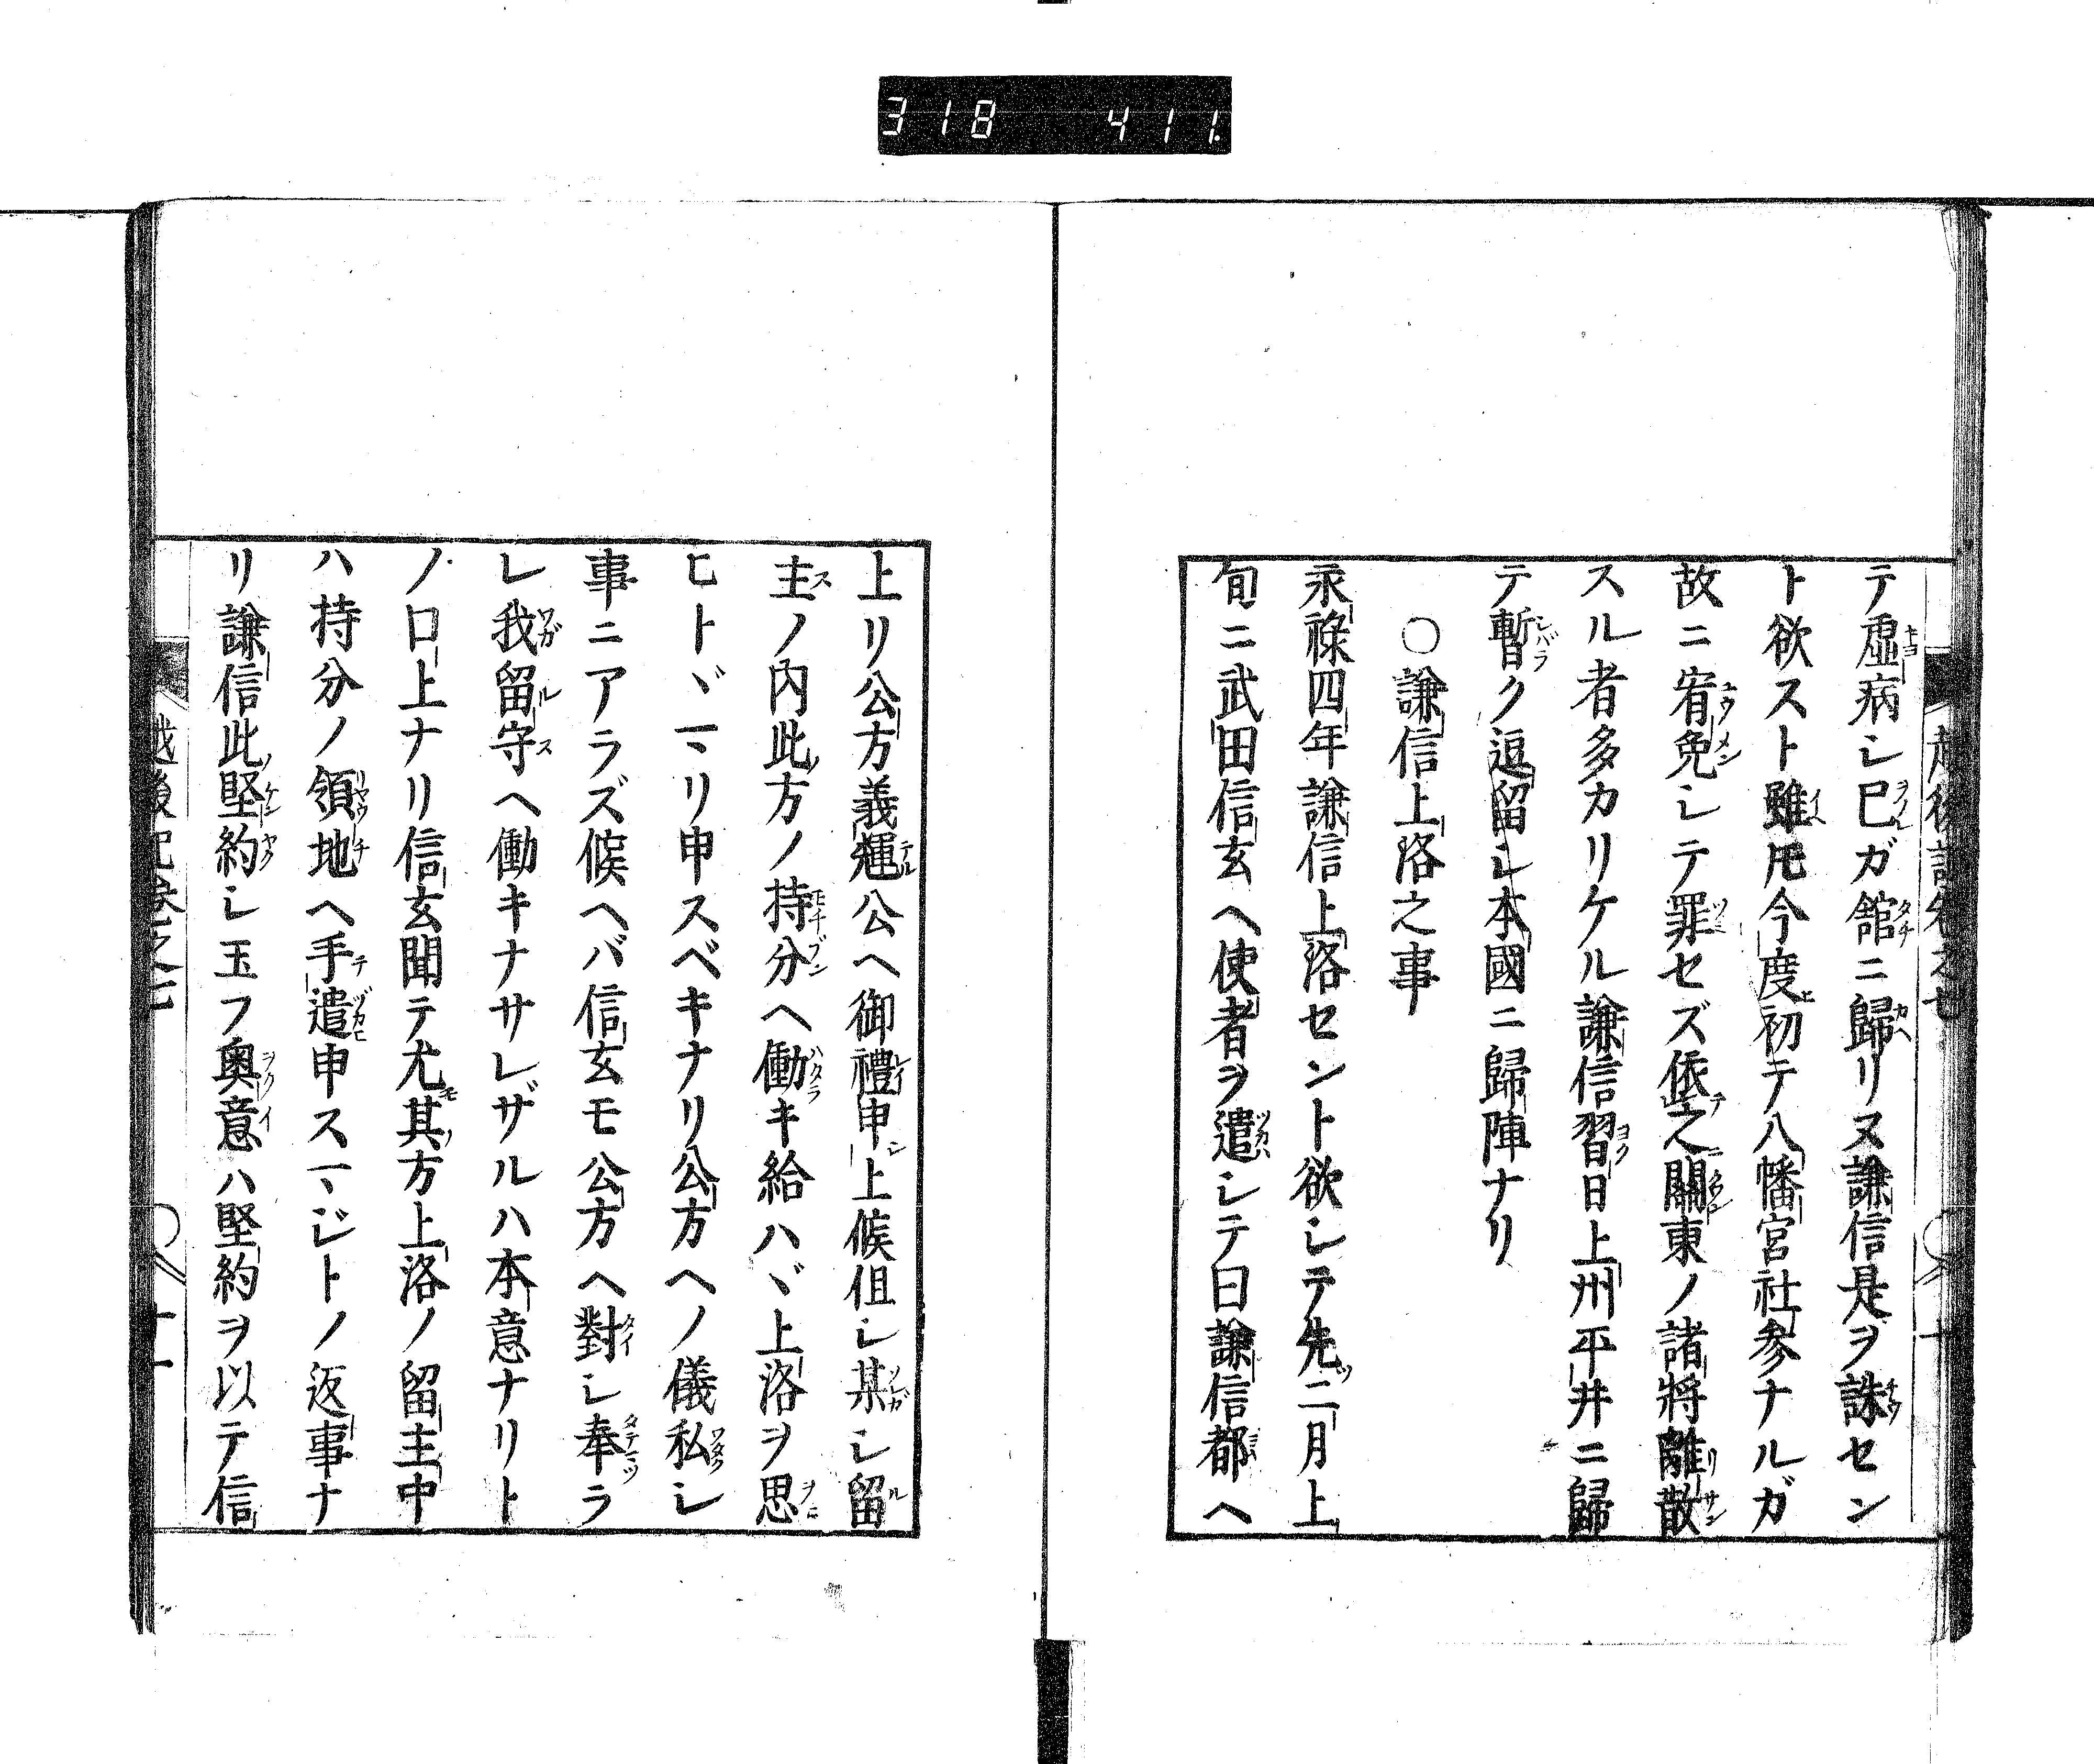 318 411.
テ虚病シ巳ガ舘ニ歸リヌ謙信是ヲ誅セン
ト欲スト雖𪜈今度初テ八幡宮社参ナルガ
故ニ宥免シテ罪セズ依之關東ノ諸將離散
スル者多カリケル謙信翌日上州平井ニ歸
テ暫ク逗留シ本國ニ歸陣ナリ
〇謙信上洛之事
永祿四年謙信上洛セント欲シテ先二月上
旬ニ武田信玄ヘ使者ヲ遣シテ曰謙信都ヘ
上リ公方義輝公ヘ御禮申上候但シ某シ留
主ノ内此方ノ持分ヘ働キ給ハヾ上洛ヲ思
ヒトヾマリ申スベキナリ公方ヘノ儀私シ
事ニアラズ候ヘバ信玄モ公方ヘ對シ奉ラ
レ我留守ヘ働キナサレザルハ本意ナリト
ノ口上ナリ信玄聞テ尤其方上洛ノ留主中
ハ持分ノ領地ヘ手遣申スマジトノ返事ナ
リ謙信此堅約シ玉フ奥意ハ堅約ヲ以テ信
越後記巻之七 十一